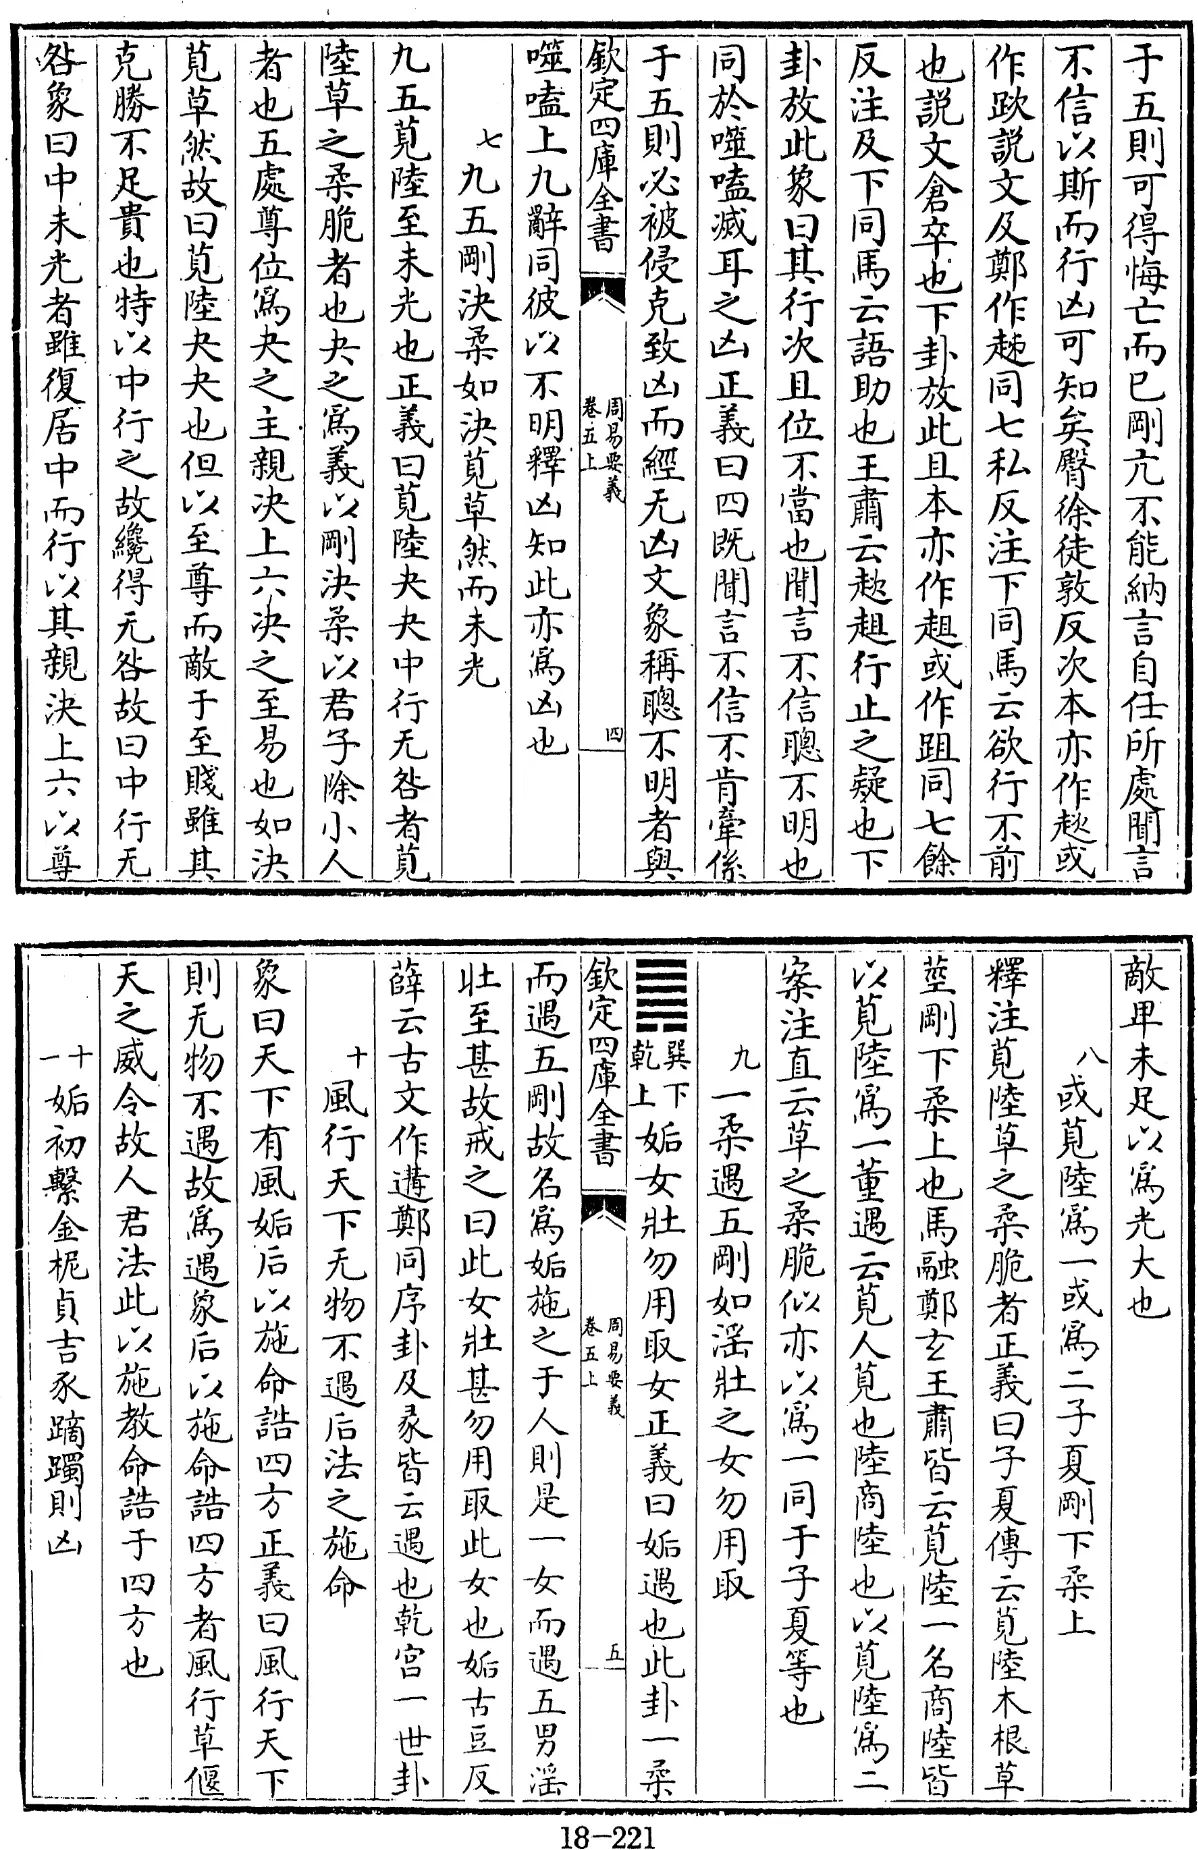 于五則可得悔亡而已剛亢不能納言自任所處聞言
不信以斯而行凶可知矣臀徐徒敦反次本亦作趑或
作跂説文及鄭作趀同七私反注下同馬云欲行不前
也説文倉卒也下卦放此且本亦作趄或作跙同七餘
反注及下同馬云語助也王肅云趑趄行止之疑也下
卦放此象曰其行次且位不當也聞言不信聰不明也
同於噬嗑滅耳之凶正義曰四既聞言不信不肯牽係
于五則必被侵克致凶而經无凶文象稱聰不明者與
欽定四庫全書
周易要義
卷五上
四
噬嗑上九辭同彼以不明釋凶知此亦爲凶也
七九五剛決柔如決莧草然而未光
九五莧陸至未光也正義曰莧陸夬夬中行无咎者莧
陸草之柔脆者也夬之爲義以剛決柔以君子除小人
者也五處尊位爲夬之主親决上六決之至易也如決
莧草然故曰莧陸夬夬也但以至尊而敵于至賤雖其
克勝不足貴也特以中行之故纔得无咎故曰中行无
咎象曰中未光者雖復居中而行以其親決上六以尊
敵卑未足以爲光大也
八或莧陸爲一或爲二子夏剛下柔上
釋注莧陸草之柔脆者正義曰子夏傳云莧陸木根草
莖剛下柔上也馬融鄭玄王肅皆云莧陸一名商陸皆
以莧陸爲一董遇云莧人莧也陸商陸也以莧陸爲二
案注直云草之柔脆似亦以爲一同于子夏等也
九一柔遇五剛如淫壯之女勿用取
䷫巽下乾上姤女壯勿用取女正義曰姤遇也此卦一柔
欽定四庫全書
周易要義
卷五上
五
而遇五剛故名爲姤施之于人則是一女而遇五男淫
壯至甚故戒之曰此女壯甚勿用取此女也姤古豆反
薛云古文作遘鄭同序卦及彖皆云遇也乾宮一世卦
十風行天下无物不遇后法之施命
象曰天下有風姤后以施命誥四方正義曰風行天下
則无物不遇故爲遇象后以施命誥四方者風行草偃
天之威令故人君法此以施教命誥于四方也
十一姤初繫金柅貞吉豕蹢躅則凶
18-221